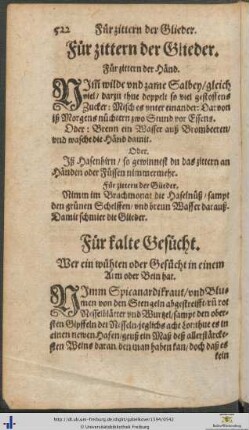 522 Für zittern der Glieder.
Für zittern der Glieder.
Für zittern der Händ.
NIm wilde vnd zame Salbey/gleich
viel/ darzu thue doppelt so viel gestossens
Zucker: Misch es vnter einander: Daruon
iß Morgens nüchtern zwo Stund vor Essens.
Oder: Brenn ein Wasser auß Brombeeren/
vnd wasche die Händ damit.
Oder.
Iß Hasenhirn/ so gewinnest du das zittern an
Händen oder Füssen nimmermehr.
Für zittern der Glieder.
Nimm im Brachmonat die Haselnüß/ sampt
den grünen Schelffen vnd brenn Wasser darauß.
Damit schmier die Glieder.
Für kalte Gesücht.
Wer ein wühten oder Gesücht in einem
Arm oder Bein hat.
NImm Spicanardikraut/ vnd Blu-
men von den Stengeln abgestreifft/
Nesselblätter vnd Wurtzel/ sampt den ober-
sten Gipffeln der Nesseln/jeglichs acht Lot: thue es in
einen newen Hafen/geuß ein Maß deß allerstärcke-
sten Weins daran den man haben kan/ doch daß es
kein